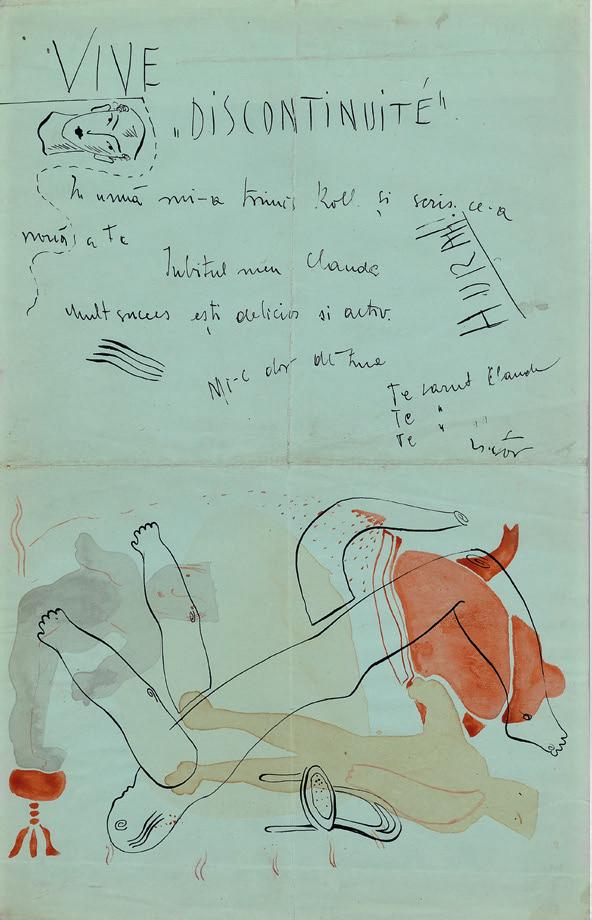 VIVE
„DISCONTINUITÉ"
În urmă mi-a trimis Roll. și scris. ce-a
a te
HURAH!!
Iubitul meu Claude
Mult succes ești delicios si activ.
Mi-e dor de tine
Te sărut Claude
Te "
Te "
Victor